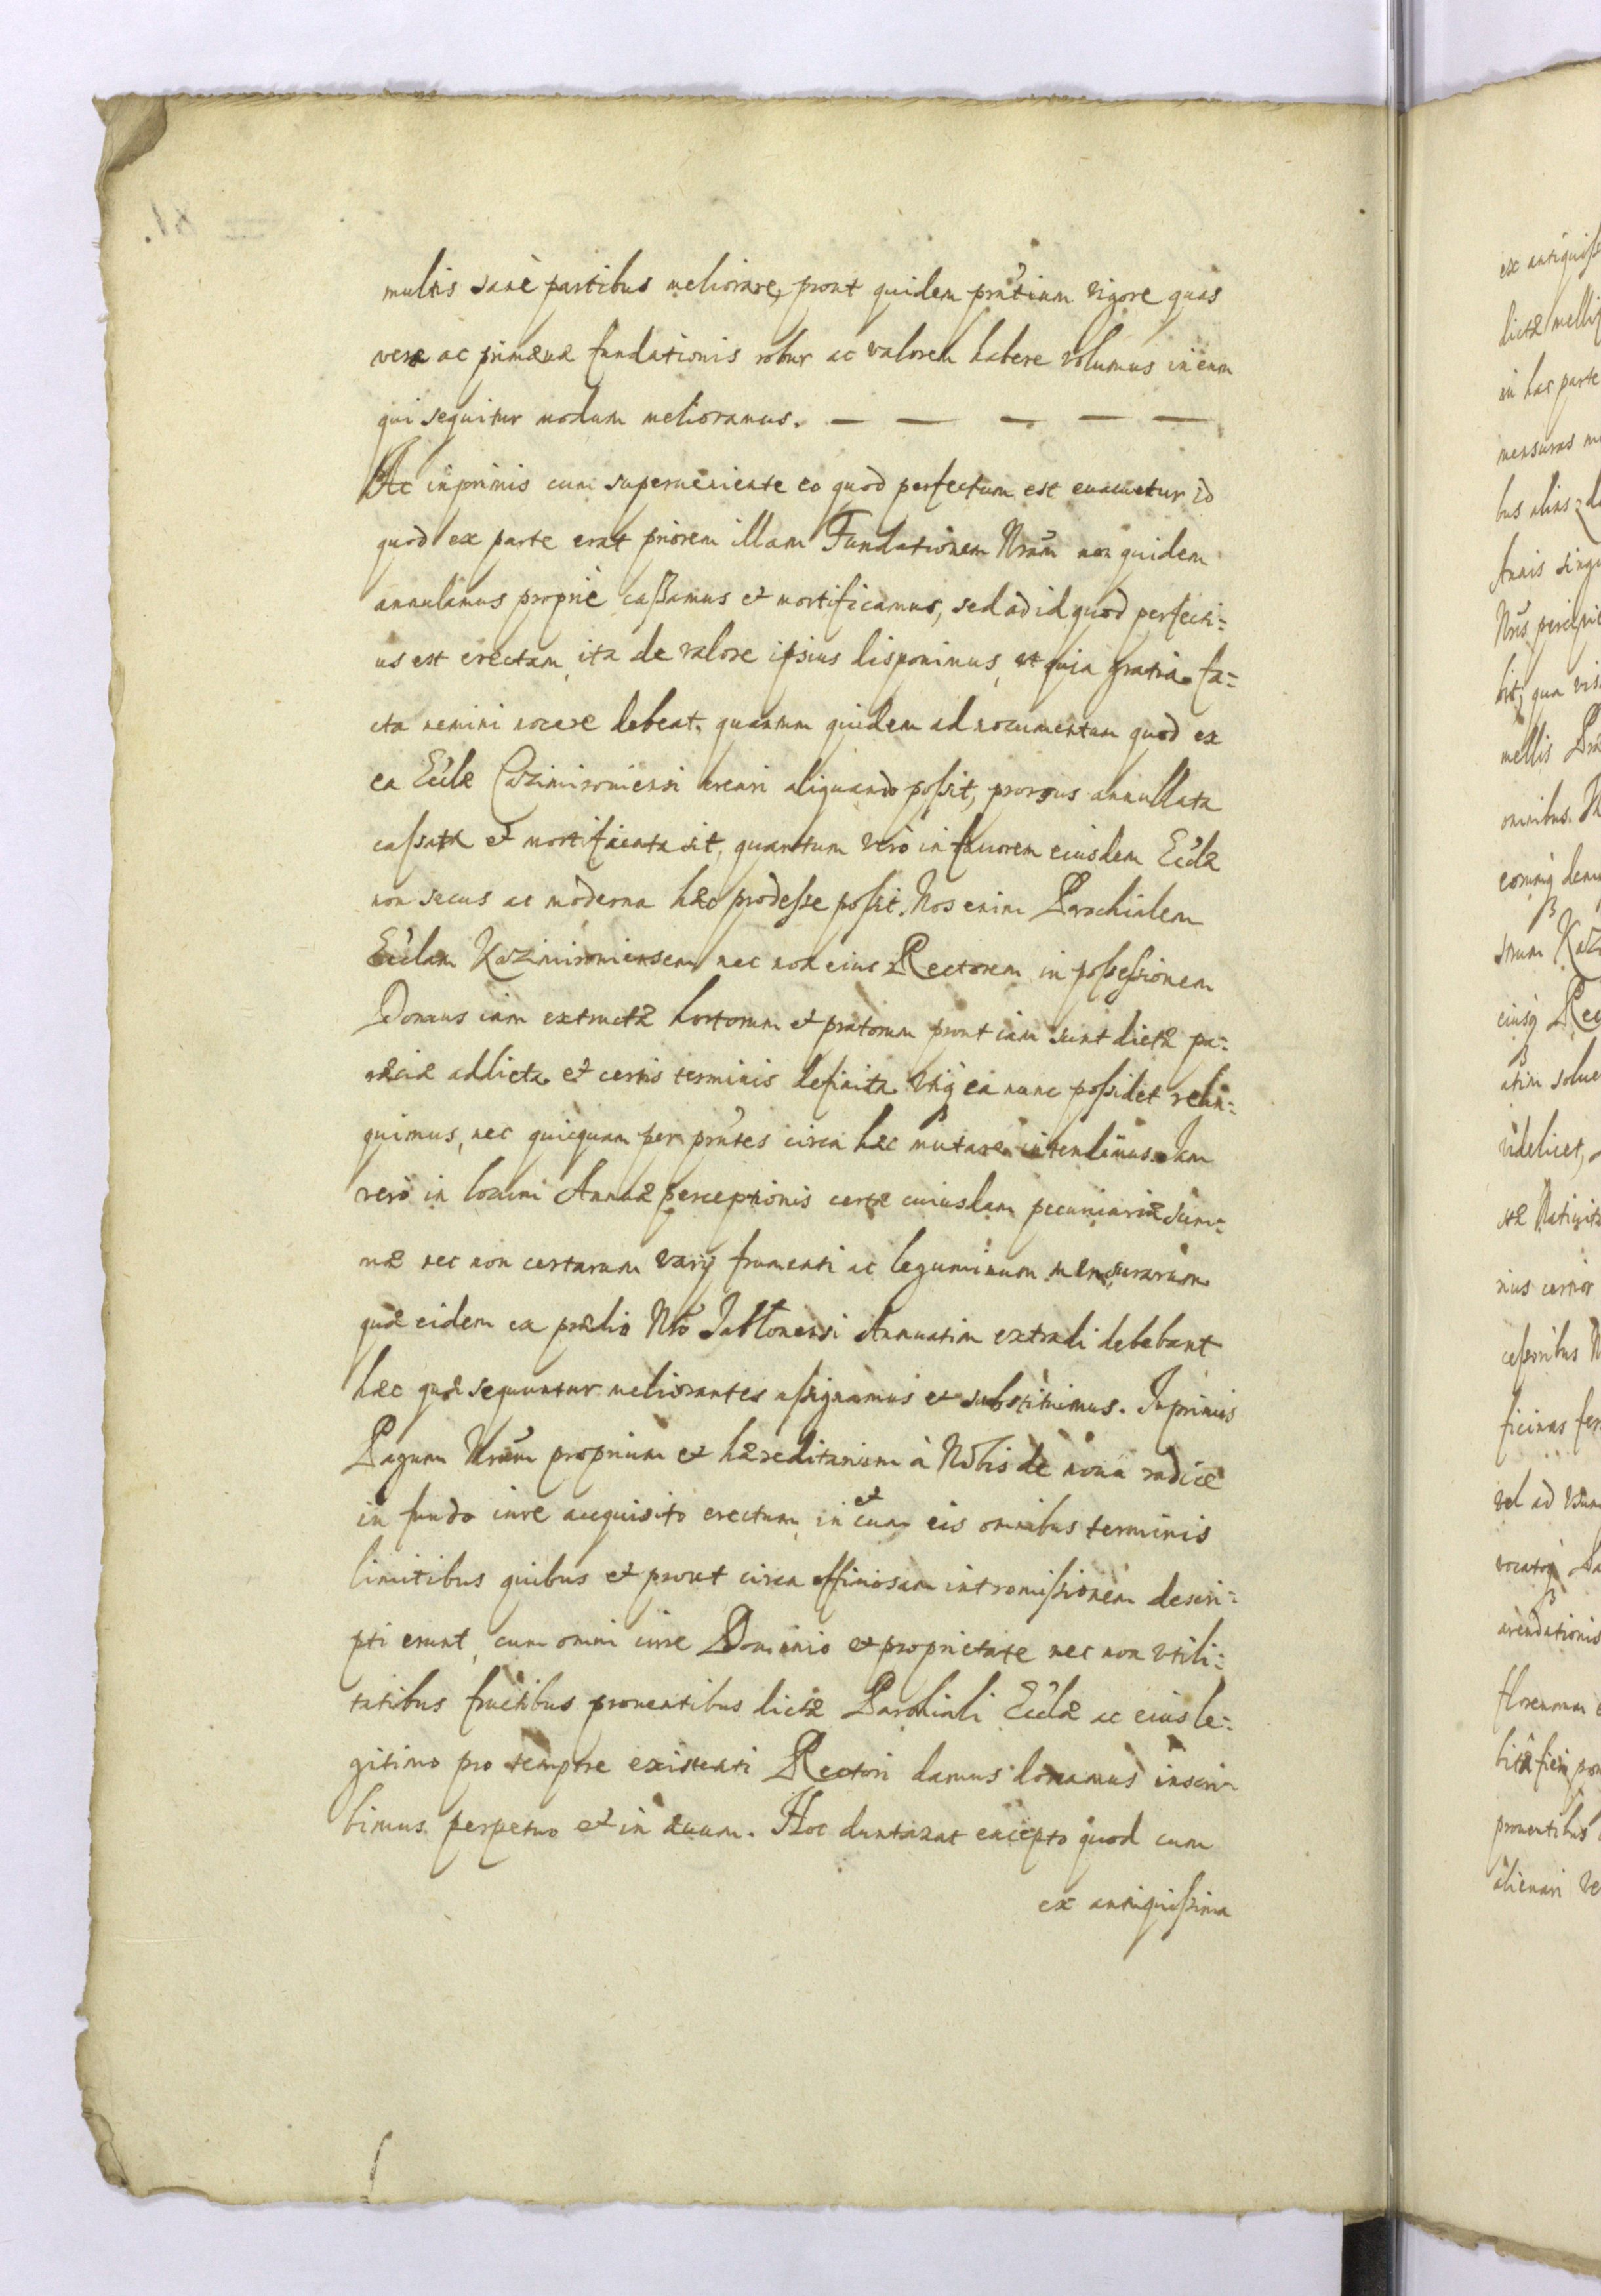 multis sanè partibus meliorare, prout quidem pñtium vigore quas
veræ ac primævæ fundationis robur ac valorem habere volumus in eum
qui sequitur modum melioramus. — — — — —
Ac inprimis cum superueniente eo quod perfectum est euacuetur id
quod ex parte erat priorem illam Fundationem Nrãm non quidem
annulamus propriè caßamus et mortificamus, sed ad id quod perfecti=
us est erectam, ita de valore ipsius disponimus, ut quia gratia fa=
cta nemini nocere debeat, quantum quidem ad nocumentum quod ex
ea Eccłæ Cazimironiensi creari aliquando poſsit, prorsus annullata
caſsata et mortificata sit, quantum verò in fauorem eiusdem Eccłæ
non secus ac moderna hæc prodeſse poſsit. Nos enim Parochialem
Eccłam Kazimironiensem nec non eius Rectorem in poſseſsionem
Domus iam extructæ hortorum et pratorum prout iam sunt dictæ pa=
ræciæ addicta et certis terminis definita utiq ea nunc poſsidet relin=
quimus, nec quicquam per pñtes circa hæc mutare intendimus. Iam
verò in locum Annuæ perceptionis certæ cuiusdam pecuniariæ sum=
mæ nec non certarum varij frumenti ac leguminum mensurarum
quæ eidem ex prædio Nrõ Jabłonensi Annuatim extradi debebant
hæc quæ sequuntur meliorantes aſsignamus et substituimus. Inprimis
Pagum Nrũm proprium et hæreditarium à Nobis de noua radice
in fundo iure acquisito erectum in et cum eis omnibus terminis
limitibus quibus et prout circa officiosam intromiſsionem descri=
pti erunt, cum omni iure Dominio et proprietate nec non utili=
tatibus fructibus prouentibus dictæ Parochiali Eccłæ ac eius le=
gitimo pro tempore existenti Rectori damus donamus inscri=
bimus perpetuo et in æuum. Hoc duntaxat excepto quod cum
ex antiquiſsima
ex antiquiſs
in hac parte
mensuras
Annis singu
mellis
omnibus.
videlicet,
vel ad
arendationis
prouentibus
alienari